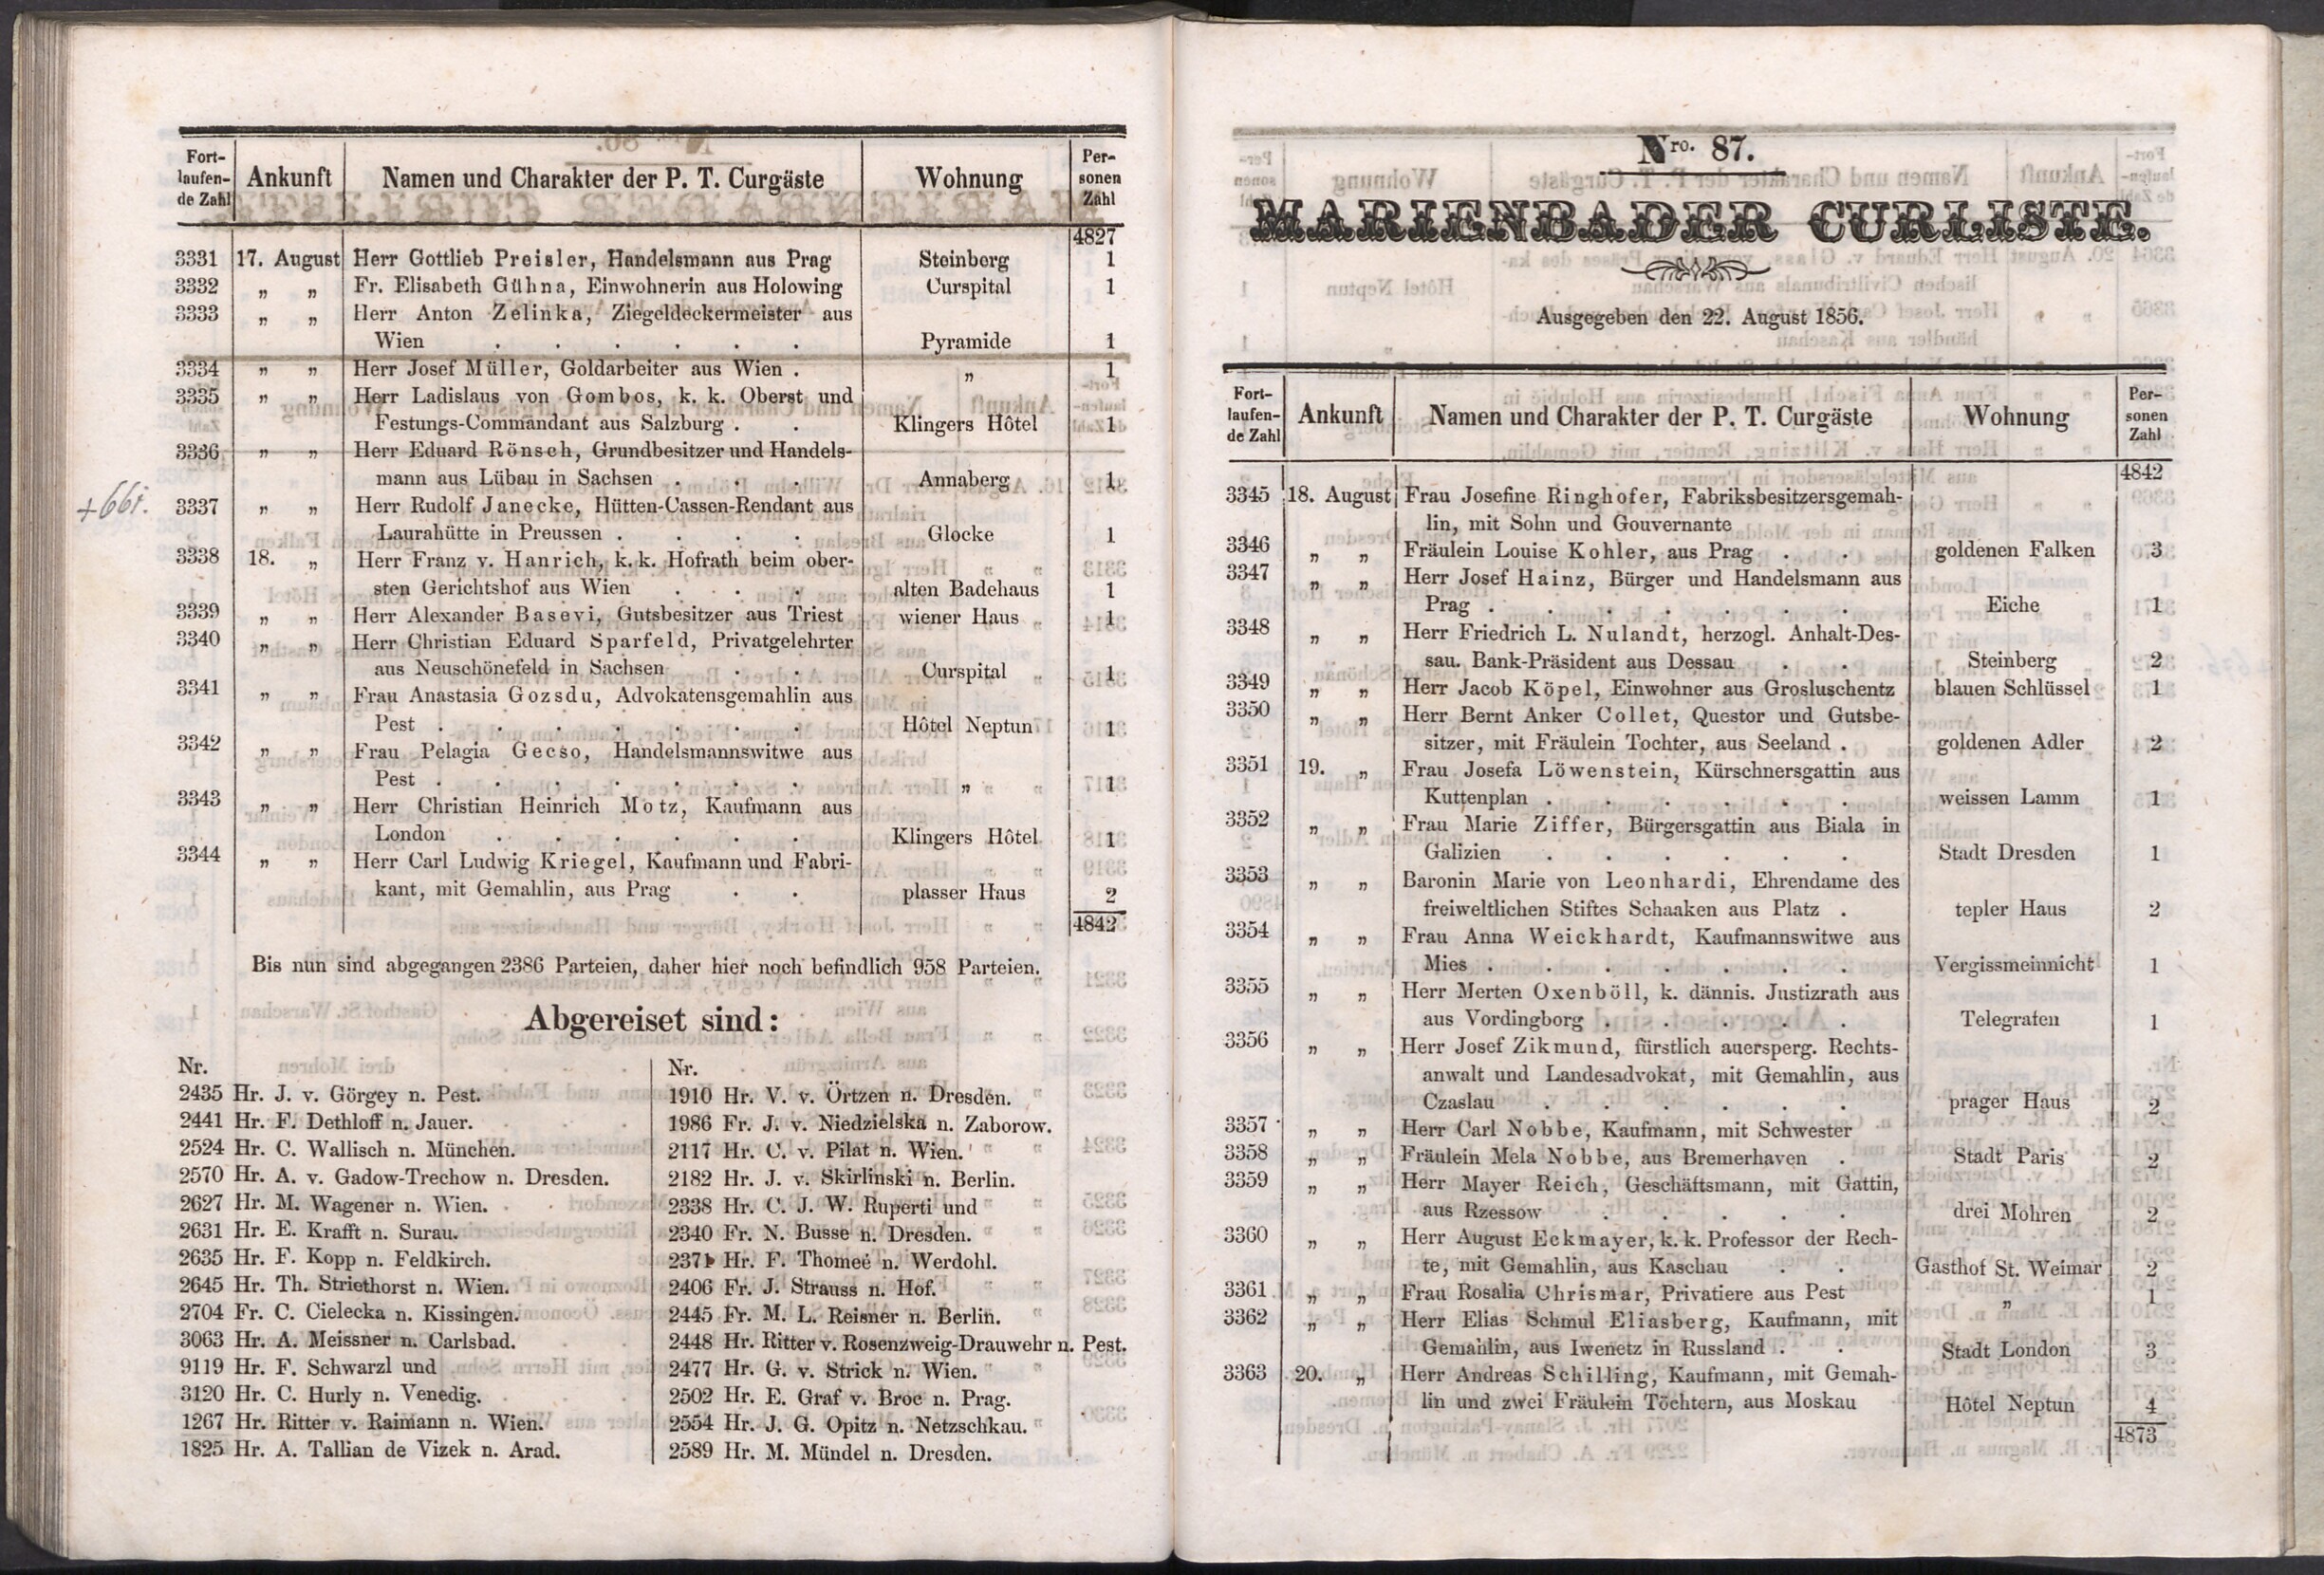 Fort-
laufen-
de Zahl
Ankunft
Namen und Charakter der P. T. Curgäste
Wohnung
Per-
sonen
Zahl
4827
3331 17. August Herr Gottlieb Preisler, Handelsmann aus Prag Steinberg 1
3332 „ „ Fr. Elisabeth Gühna, Einwohnerin aus Holowing Curspital 1
3333 „ „ Herr Anton Zelinka, Ziegeldeckermeister aus
Wien . . . . . . Pyramide 1
3334 „ „ Herr Josef Müller, Goldarbeiter aus Wien . „ 1
3335 „ „ Herr Ladislaus von Gombos, k. k. Oberst und
Festungs-Commandant aus Salzburg . . Klingers Hôtel 1
3336 „ „ Herr Eduard Rönsch, Grundbesitzer und Handels-
mann aus Lübau in Sachsen . . . Annaberg 1
+661.
3337 „ „ Herr Rudolf Janecke, Hütten-Cassen-Rendant aus
Laurahütte in Preussen . . . . Glocke 1
3338 18. „ Herr Franz v. Hanrich, k. k. Hofrath beim ober-
sten Gerichtshof aus Wien . . . alten Badehaus 1
3339 „ „ Herr Alexander Basevi, Gutsbesitzer aus Triest wiener Haus 1
3340 „ „ Herr Christian Eduard Sparfeld, Privatgelehrter
aus Neuschönefeld in Sachsen . . Curspital 1
3341 „ „ Frau Anastasia Gozsdu, Advokatensgemahlin aus
Pest . . . . . . . Hôtel Neptun 1
3342 „ „ Frau Pelagia Gecso, Handelsmannswitwe aus
Pest . . . . . . . „ 1
3343 „ „ Herr Christian Heinrich Motz, Kaufmann aus
London . . . . . . Klingers Hôtel 1
3344 „ „ Herr Carl Ludwig Kriegel, Kaufmann und Fabri-
kant, mit Gemahlin, aus Prag . . plasser Haus 2
4842
Bis nun sind abgegangen 2386 Parteien, daher hier noch befindlich 958 Parteien.
Abgereiset sind:
Nr.
2435 Hr. J. v. Görgey n. Pest.
2441 Hr. F. Dethloff n. Jauer.
2524 Hr. C. Wallisch n. München.
2570 Hr. A. v. Gadow-Trechow n. Dresden.
2627 Hr. M. Wagener n. Wien.
2631 Hr. E. Krafft n. Surau.
2635 Hr. F. Kopp n. Feldkirch.
2645 Hr. Th. Striethorst n. Wien.
2704 Fr. C. Cielecka n. Kissingen.
3063 Hr. A. Meissner n. Carlsbad.
9119 Hr. F. Schwarzl und
3120 Hr. C. Hurly n. Venedig.
1267 Hr. Ritter v. Raimann n. Wien.
1825 Hr. A. Tallian de Vizek n. Arad.
Nr.
1910 Hr. V. v. Örtzen n. Dresden.
1986 Fr. J. v. Niedzielska n. Zaborow.
2117 Hr. C. v. Pilat n. Wien.
2182 Hr. J. v. Skirlinski n. Berlin.
2338 Hr. C. J. W. Ruperti und
2340 Fr. N. Busse n. Dresden.
2371 Hr. F. Thomeé n. Werdohl.
2406 Fr. J. Strauss n. Hof.
2445 Fr. M. L. Reisner n. Berlin.
2448 Hr. Ritter v. Rosenzweig-Drauwehr n. Pest.
2477 Hr. G. v. Strick n. Wien.
2502 Hr. E. Graf v. Broc n. Prag.
2554 Hr. J. G. Opitz n. Netzschkau.
2589 Hr. M. Mündel n. Dresden.
Nro. 87.
MARIENBADER CURLISTE.
Ausgegeben den 22. August 1856.
Fort-
laufen-
de Zahl
Ankunft
Namen und Charakter der P. T. Curgäste
Wohnung
Per-
sonen
Zahl
4842
3345 18. August Frau Josefine Ringhofer, Fabriksbesitzersgemah-
lin, mit Sohn und Gouvernante
3346 „ „ Fräulein Louise Kohler, aus Prag . . goldenen Falken 3
3347 „ „ Herr Josef Hainz, Bürger und Handelsmann aus
Prag . . . . . . . Eiche 1
3348 „ „ Herr Friedrich L. Nulandt, herzogl. Anhalt-Des-
sau. Bank-Präsident aus Dessau . . Steinberg 2
3349 „ „ Herr Jacob Köpel, Einwohner aus Grosluschentz blauen Schlüssel 1
3350 „ „ Herr Bernt Anker Collet, Questor und Gutsbe-
sitzer, mit Fräulein Tochter, aus Seeland . goldenen Adler 2
3351 19. „ Frau Josefa Löwenstein, Kürschnersgattin aus
Kuttenplan . . . . . . weissen Lamm 1
3352 „ „ Frau Marie Ziffer, Bürgersgattin aus Biala in
Galizien . . . . . . Stadt Dresden 1
3353 „ „ Baronin Marie von Leonhardi, Ehrendame des
freiweltlichen Stiftes Schaaken aus Platz . tepler Haus 2
3354 „ „ Frau Anna Weickhardt, Kaufmannswitwe aus
Mies . . . . . . . Vergissmeinnicht 1
3355 „ „ Herr Merten Oxenböll, k. dännis. Justizrath aus
aus Vordingborg . . . . . Telegrafen 1
3356 „ „ Herr Josef Zikmund, fürstlich auersperg. Rechts-
anwalt und Landesadvokat, mit Gemahlin, aus
Czaslau . . . . . . prager Haus 2
3357 „ „ Herr Carl Nobbe, Kaufmann, mit Schwester
3358 „ „ Fräulein Mela Nobbe, aus Bremerhaven . Stadt Paris 2
3359 „ „ Herr Mayer Reich, Geschäftsmann, mit Gattin,
aus Rzessow . . . . . drei Mohren 2
3360 „ „ Herr August Eckmayer, k. k. Professor der Rech-
te, mit Gemahlin, aus Kaschau . . Gasthof St. Weimar 2
3361 „ „ Frau Rosalia Chrismar, Privatiere aus Pest „ 1
3362 „ „ Herr Elias Schmul Eliasberg, Kaufmann, mit
Gemahlin, aus Iwenetz in Russland . . Stadt London 3
3363 20. „ Herr Andreas Schilling, Kaufmann, mit Gemah-
lin und zwei Fräulein Töchtern, aus Moskau Hôtel Neptun 4
4873